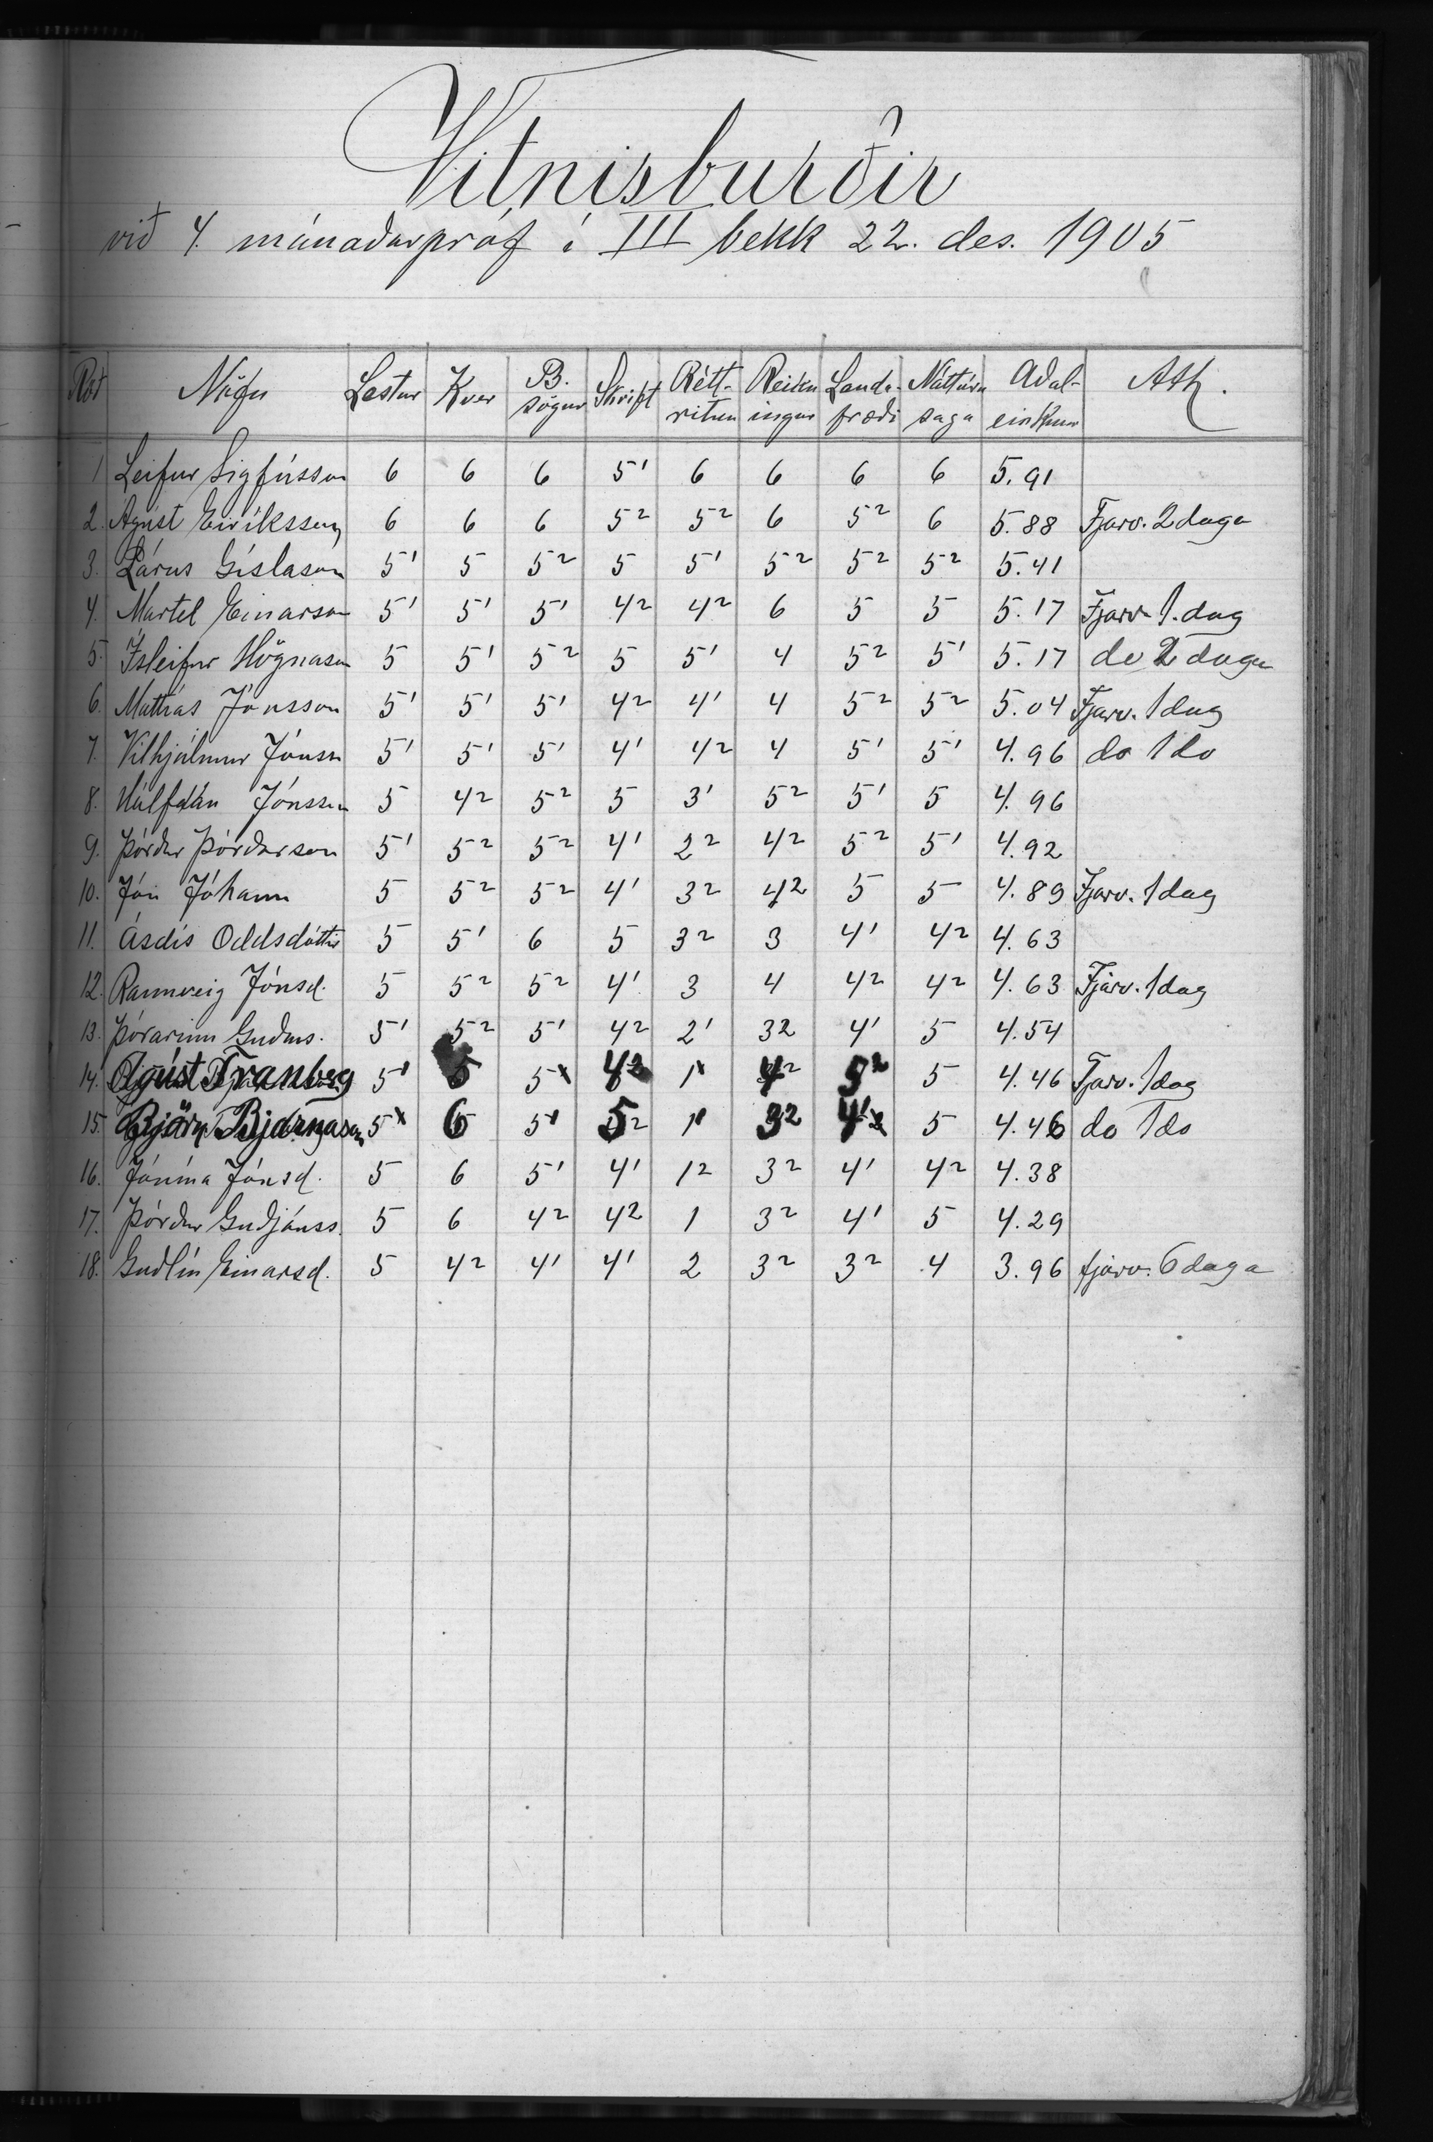 Vitnisburðir
við 4. mánaðarpróf í III bekk 22. des. 1905
Röð Nöfn Lestur Kver B. sögur Skrift Rétt-ritun Reikningur Landa-fræði Náttúru saga Aðal-einkunn Ath.
1 Leifur Sigfússon 6 6 6 5¹ 6 6 6 6 5.91
2. Ágúst Eiríksson 6 6 6 5² 5² 6 5² 6 5.88 Fjarv. 2 daga
3. Lárus Gíslason 5¹ 5 5² 5 5¹ 5² 5² 5² 5.41
4. Martel Einarson 5¹ 5¹ 5¹ 4² 4² 6 5 5 5.17 Fjarv. 1. dag
5. Ísleifur Högnason 5 5¹ 5² 5 5¹ 4 5² 5¹ 5.17 do 2 daga
6. Mattías Jónsson 5¹ 5¹ 5¹ 4² 4¹ 4 5² 5² 5.04 Fjarv. 1 dag
7. Vilhjálmur Jónss 5¹ 5¹ 5¹ 4¹ 4² 4 5¹ 5¹ 4.96 do 1 do
8. Hálfdán Jónsson 5 4² 5² 5 3¹ 5² 5¹ 5 4.96
9. Þórður Þórðarson 5¹ 5² 5² 4¹ 2² 4² 5² 5¹ 4.92
10. Jón Jóhann 5 5² 5² 4¹ 3² 4² 5 5 4.89 Fjarv. 1 dag
11. Ásdís Oddsdóttir 5 5¹ 6 5 3² 3 4¹ 4² 4.63
12. Rannveig Jónsd. 5 5² 5² 4¹ 3 4 4² 4² 4.63 Fjarv. 1 dag
13. Þórarinn Guðms. 5¹ 5² 5¹ 4² 2¹ 3² 4¹ 5 4.54
14. Ágúst Tranberg 5¹ 5 5¹ 4² 1¹ 4² 5² 5 4.46 Fjarv. 1 dag
15. Björn Bjarnason 5¹ 6 5¹ 5 1¹ 3² 4¹ 5 4.46 do 1 do
16. Jónína Jónsd. 5 6 5¹ 4¹ 1² 3² 4¹ 4² 4.38
17. Þórður Guðjónss. 5 6 4² 4² 1 3² 4¹ 5 4.29
18. Guðlín Einarsd. 5 4² 4¹ 4¹ 2 3² 3² 4 3.96 fjarv. 6 daga